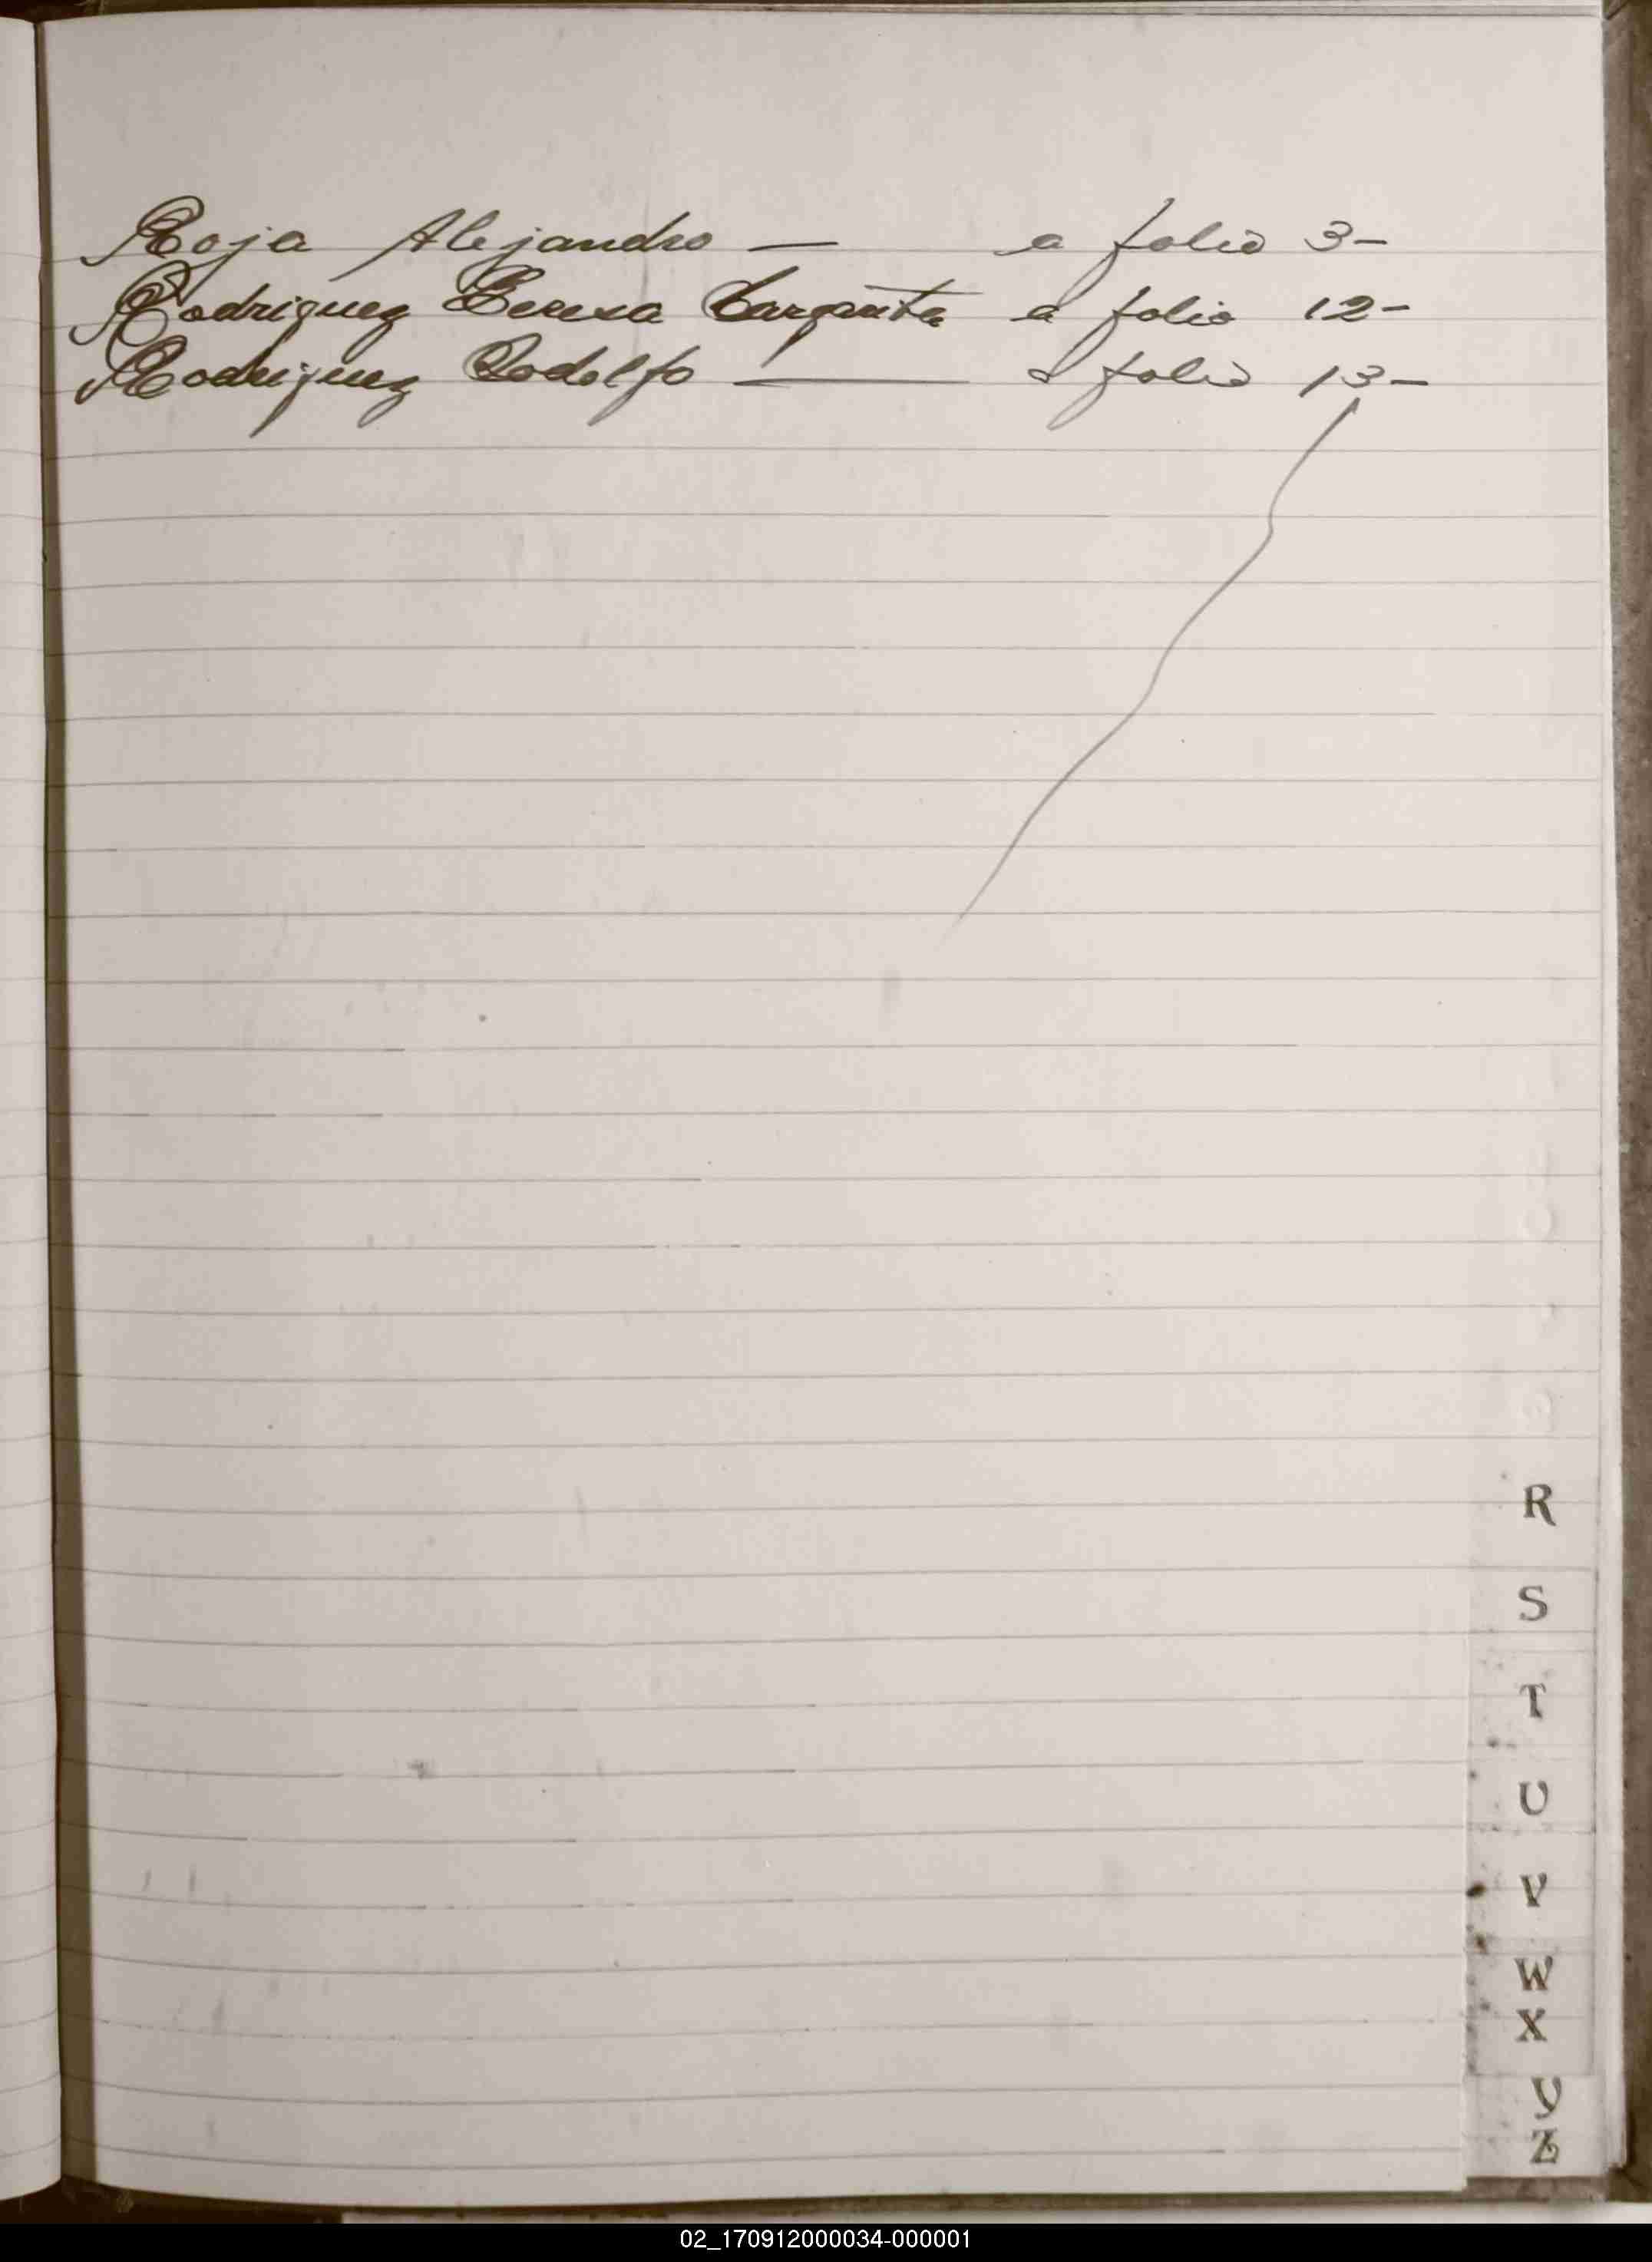 Roja Alejandro — a folio 3-
Rodriguez Teresa a folio 12-
Rodriguez Rodolfo — a folio 13-
R
S
T
U
V
W
X
Y
Z
02_170912000034-000001